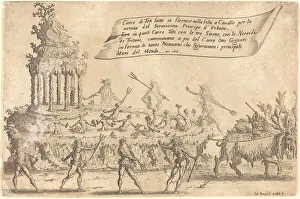 Carro di Teti fatto in Firenze nella festa a Cavallo per la
uenuta del Serenissimo Principe d' Urbino.
sono in questo Carro Teti con le tre Sirene con le Nereide
e Tritoni, caminauano a pie del Carro otto Giganti
in forma di tanti Nettunni che figurauano i principali
Mari del Mondo.